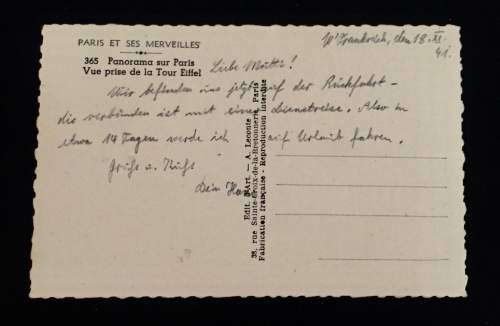 PARIS ET SES MERVEILLES
365 Panorama sur Paris
Vue prise de la Tour Eiffel
W'Frankreich, den 18. XI.
41.
Liebe Mutti!
Wir befinden uns jetzt auf der Rückfahrt -
die verbunden ist mit einer Dienstreise. Also in
etwa 14 Tagen werde ich auf Urlaub fahren.
Gruß u. Kuß
Dein
Edit. d'Art. — A. Leconte
38, rue Sainte-Croix-de-la-Bretonnerie, Paris
Fabrication française - Reproduction interdite